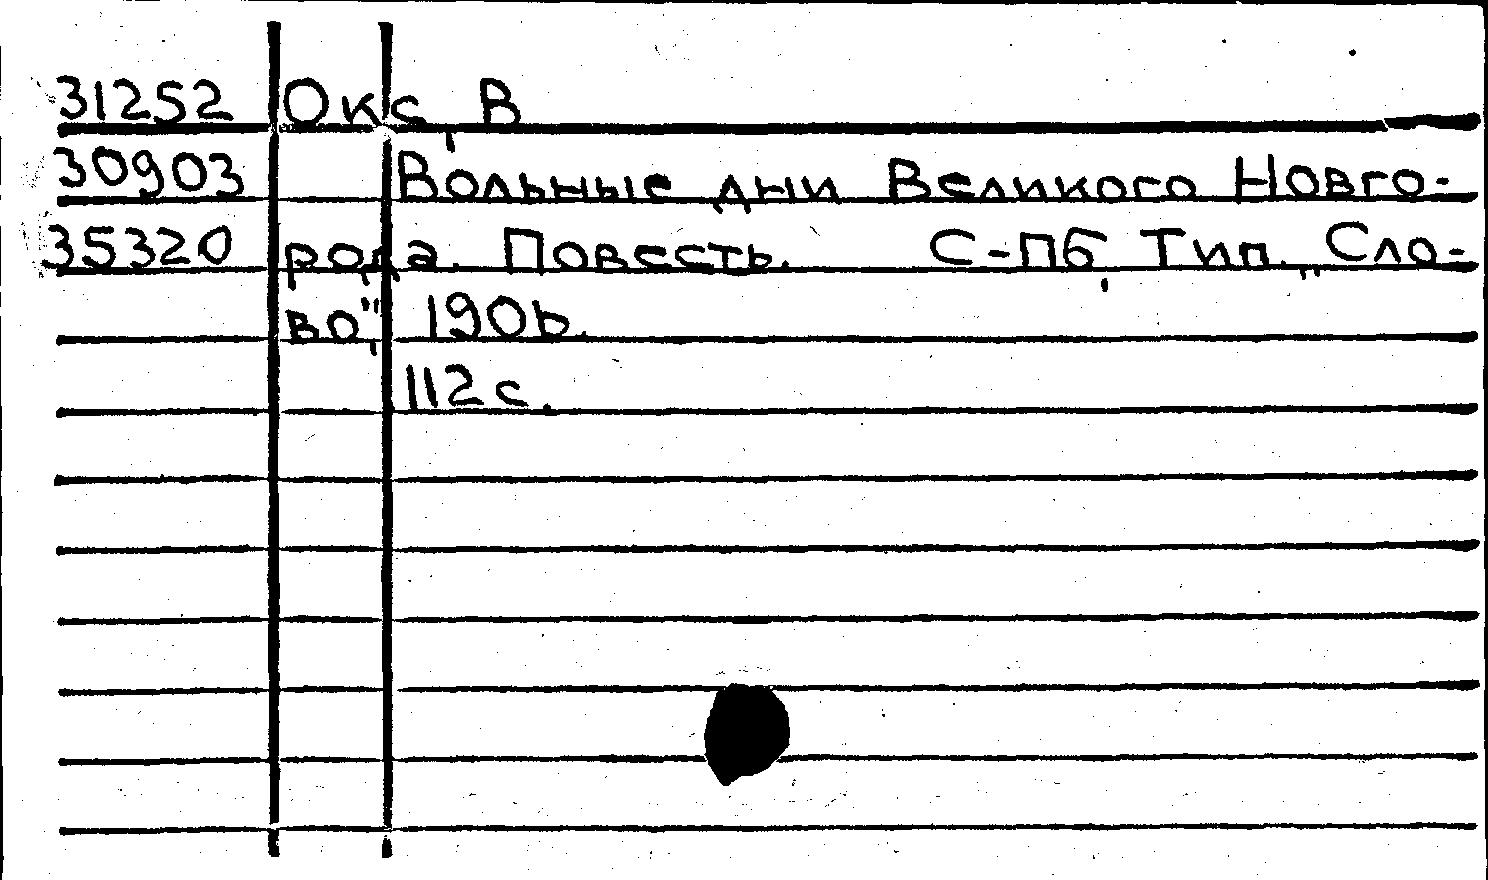 31252 Окс, В
30903 Вольные дни Великого Новго-
35320 рода. Повесть. С-Пб, Тип. „Сло-
во", 1906.
112 с.